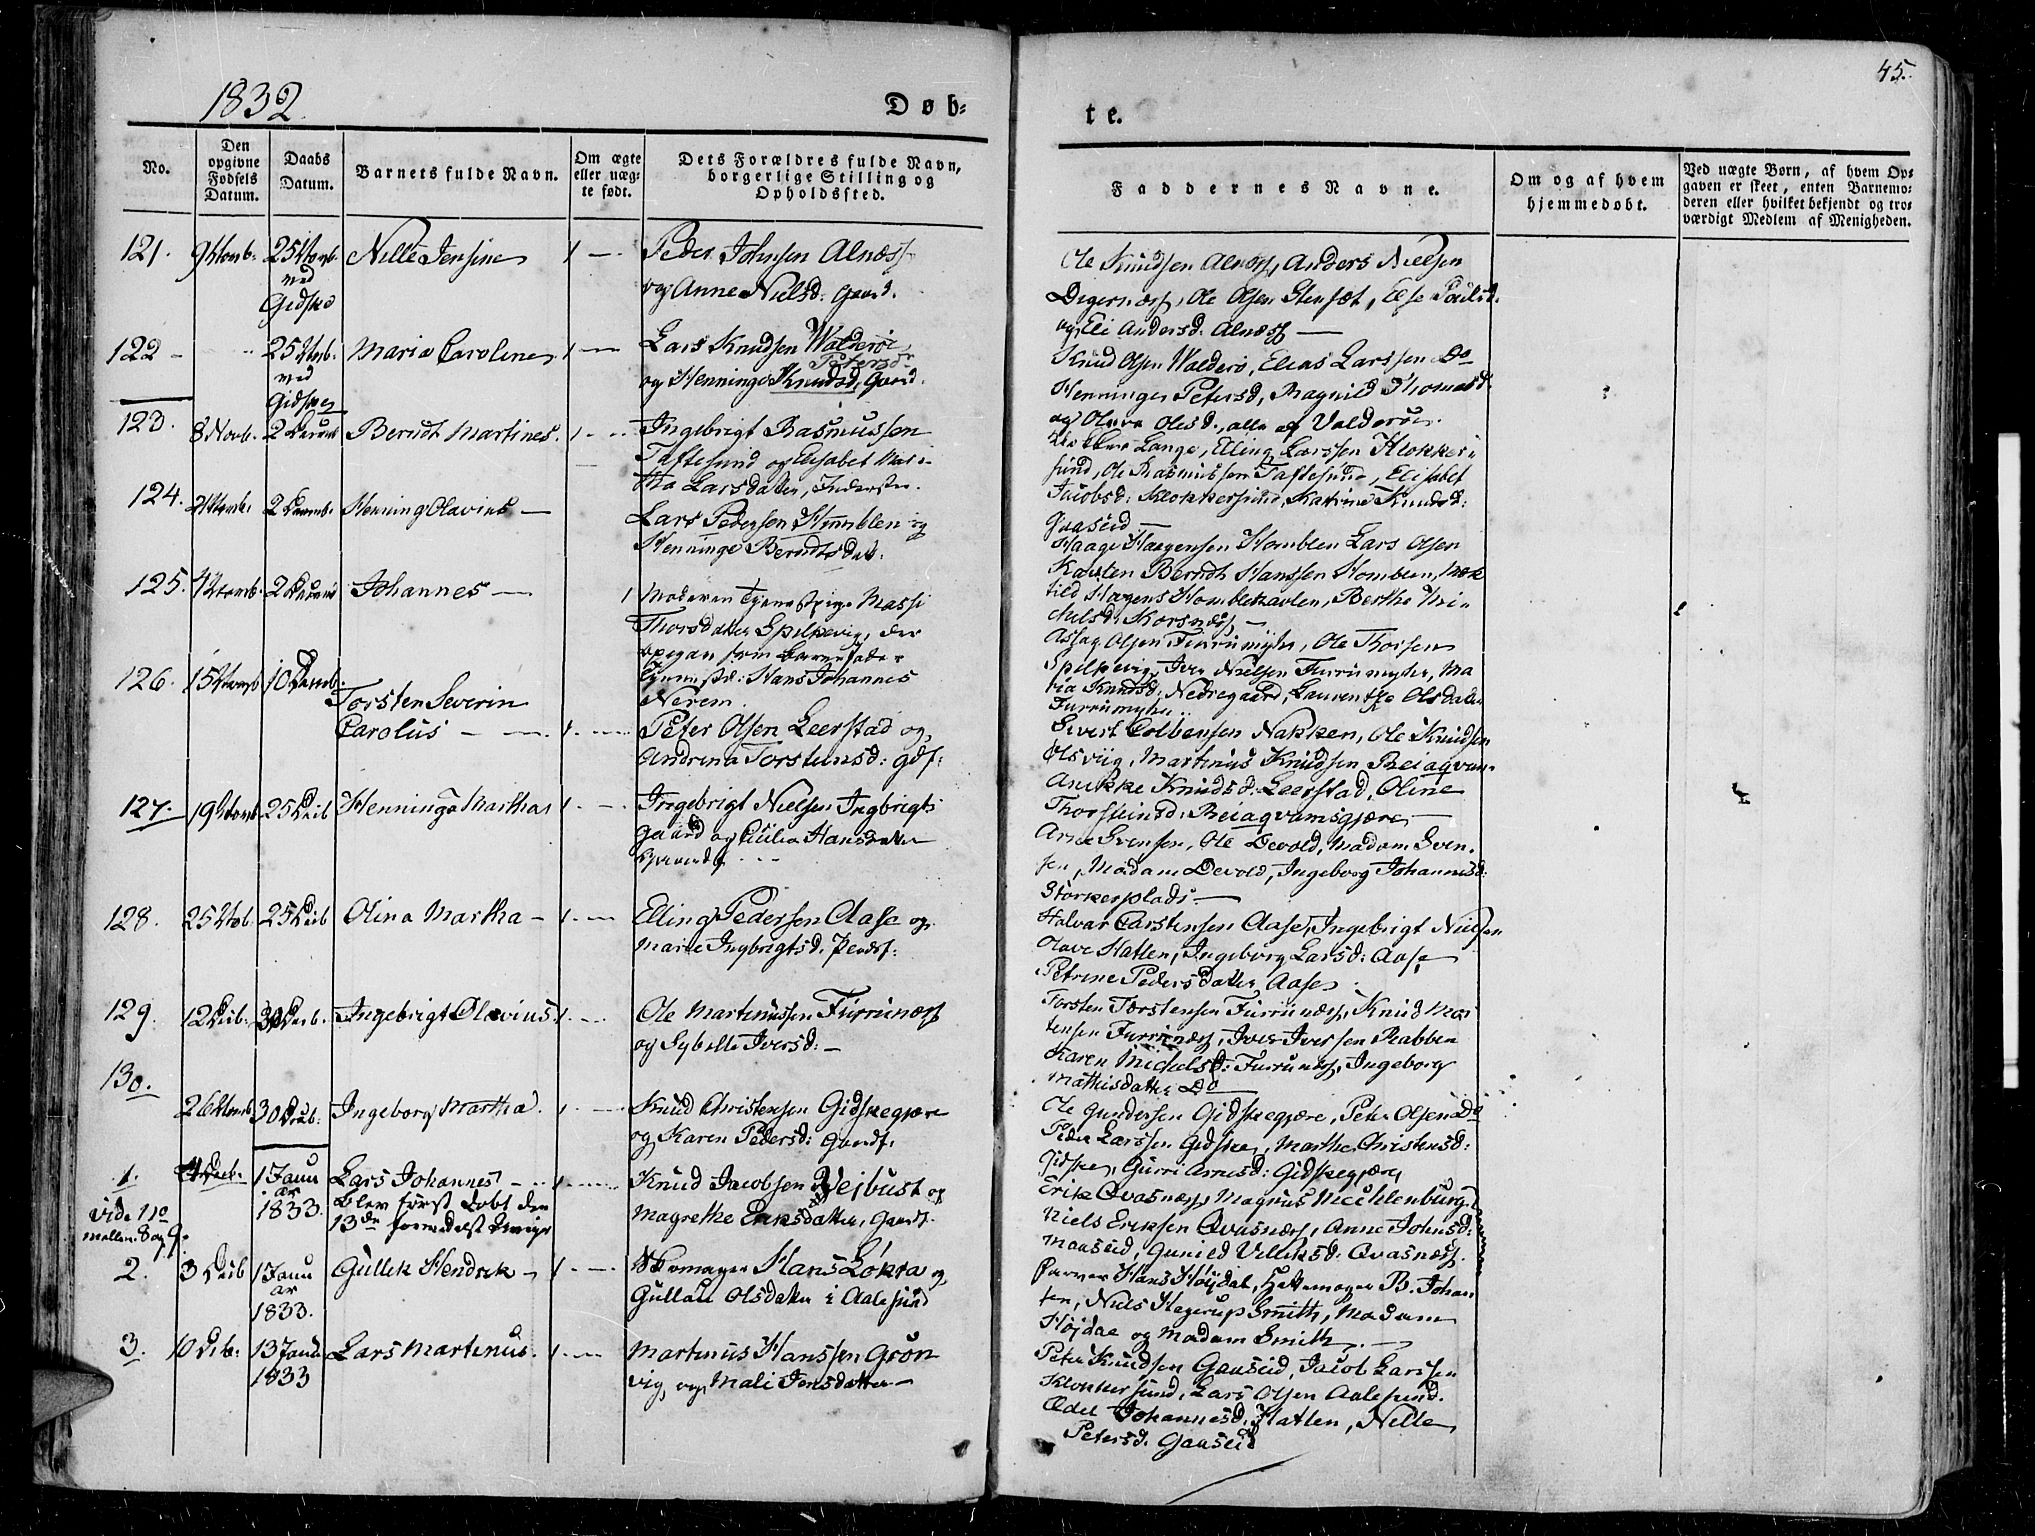 1832
Døb=
te.
45.
No.
Den
opgivne
Fødsels
Datum.
Daabs
Datum.
Barnets fulde Navn.
Om ægte
eller uæg=
te født.
Dets Forældres fulde Navn,
borgerlige Stilling og
Opholdssted.
Faddernes Navne.
Om og af hvem
hjemmedøbt.
Ved uægte Børn, af hvem Op=
gaven er skeet, enten Barnemo=
deren eller hvilket bekjendt og tro=
værdigt Medlem af Menigheden.
121.
ved
Nille Jensine
1 —
Peder Johnsen Alnæss
og Anne Nielsd: Gaard.
Ole Knudsen Alnæss, Anders Nielsen
Degernæss, Ole Olsen Stensæt, Else Paulsd.
og Eli Andersd. Alnæss —
122 -
ved
Maria Caroline
1 —
Lars Knudsen Walderøe
Petersdr
og Henninge Knudsd, Gaard.
Knud Olsen Walderø, Elias Larssen Do
Henninge Petersd, Magnild Thomasd
og Oluva Olesd., alle af Valderøe.
123.
8 Novb.
Berndt Martines.
1 —
Ingebrigt Rasmussen
Taftesund og Elisabet Mar=
tha Larsdatter,
Lange, Elling Larssen Klokker=
sund, Ole Rasmussen Taftesund, Elisabet
Jacobsd: Klokkersund, Katrine Knudsd:
Gaaseid —
124.
Henning Olavius —
Lars Pedersen Humblen og
Henninge Berndtsdat.
Haage Haagensen Homblen Lars Olsen
Karsten Berndt Hanssen Homblen, Mek
tild Hagens Homblehavlen, Berthe Mi=
chelsd: Korsnæss —
125.
Johannes —
1
Moderen Tjenestpige Massi
Thorsdatter Spilkevig, der
opgav som Barnefader
Hans Johannes
Nerem.
Assag Olsen Furrumyhr, Ole Thorsen
Spilkevig, Iver Nielsen Furrumyhr, Ma
ria Knudsd: Nedregaard, Laurentze Olsdatter
Furrumyhr
126.
Torsten Severin
Carolus — —
1 —
Peter Olsen Leerstad og
Andrina Torstensd: Gdf:
Sivert Colbensen Nakken, Ole Knudsen
Olsviig, Martinus Knudsen Beiaqvam.
Anikke Knudsd: Leerstad, Oline
Thorsteinsd: Beiaqvamsgjære —
127.
Henninga Martha
1 —
Ingebrigt Nielsen Ingbrigts
gaard og Cicilia Hansdatter
Arne Svensen, Ole Devold, Madam Sven=
sen, Madam Devold, Ingeborg Johannesd:
Storkersplads —
128.
Olina Martha —
1 —
Elling Pedersen Aase og
Marte Ingbrigtsd.
Halvar Carstensen Aase, Ingebrigt Nielsen
Olave Hatlen, Ingeborg Larsd: Aase
Petrine Pedersdatter Aase
129.
Ingebrigt Olavius
1 —
Ole Martinussen Furrunæss
og Sybille Iversd: —
Torsten Torstensen Furrunæss, Knud Mor
tensen Furrunæss, Iver Iverssen Rabben
Karen Michelsd: Furrunæss, Ingeborg
Mathisdatter Do
130.
Ingeborg Martha.
1 —
Knud Christensen Gidskegjære
og Karen Pedersd: Gaardf.
Ole Gundersen Gidskegjære, Peter Olsen Do
Peder Larssen Gidske, Marthe Christensd:
Gidske, Gurri Arnesd: Gidskegjære
1.
vide No
mellem 8 og 9.
1 Janu
ar
1833.
Lars Johannes —
blev først døbt den
13de
1 —
Knud Jacobsen Vejbust og
Magrethe Eriksdatter, Gaardf.
Erik Qvasnæss, Magnus Mechlenburg,
Niels Eriksen Qvasnæss, Anne Johnsd:
Maaseid, Gunild Villiksd: Qvasnæss.
2.
1 Janu
ar
1833.
Gullik Hendrik —
1 —
Skomager Hans Løkra og
Gullau Olsdatter i Aalesund
Hans Høydal, Hattemager B. Johan
sen, Niels Hagerup Smith, Madam
Højdal og Madam Smith. —
3.
1833
Lars Martinus.
1 —
Martinus Hanssen Grøn
vig, og Mali Jensdatter —
Peter Knudsen Gaaseid, Jacob Larsen
Klokkersund, Lars Olsen Aalesund.
Johannesd. Hatlen, Nille
Petersd. Gaaseid